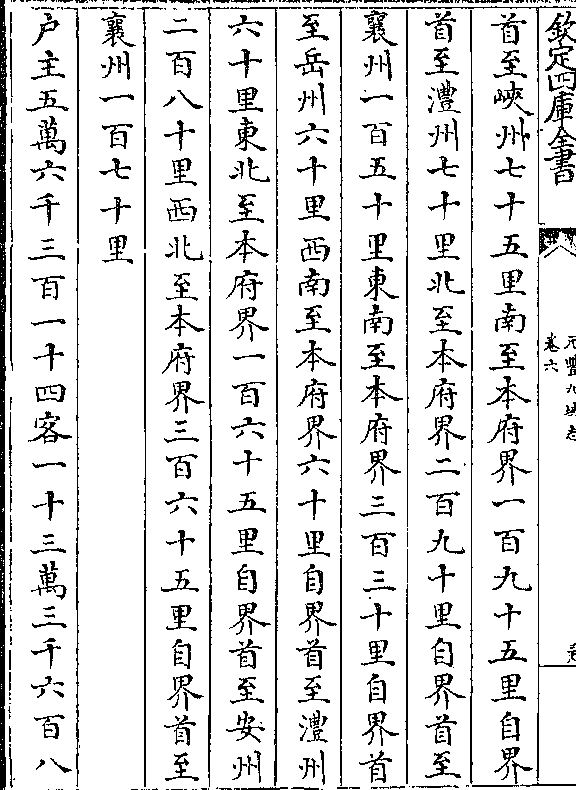 欽定四庫全書
元豐九域志
卷六
首至峽州七十五里南至本府界一百九十五里自界
首至澧州七十里北至本府界二百九十里自界首至
襄州一百五十里東南至本府界三百三十里自界首
至岳州六十里西南至本府界六十里自界首至澧州
六十里東北至本府界一百六十五里自界首至安州
二百八十里西北至本府界三百六十五里自界首至
襄州一百七十里
户主五萬六千三百一十四客一十三萬三千六百八